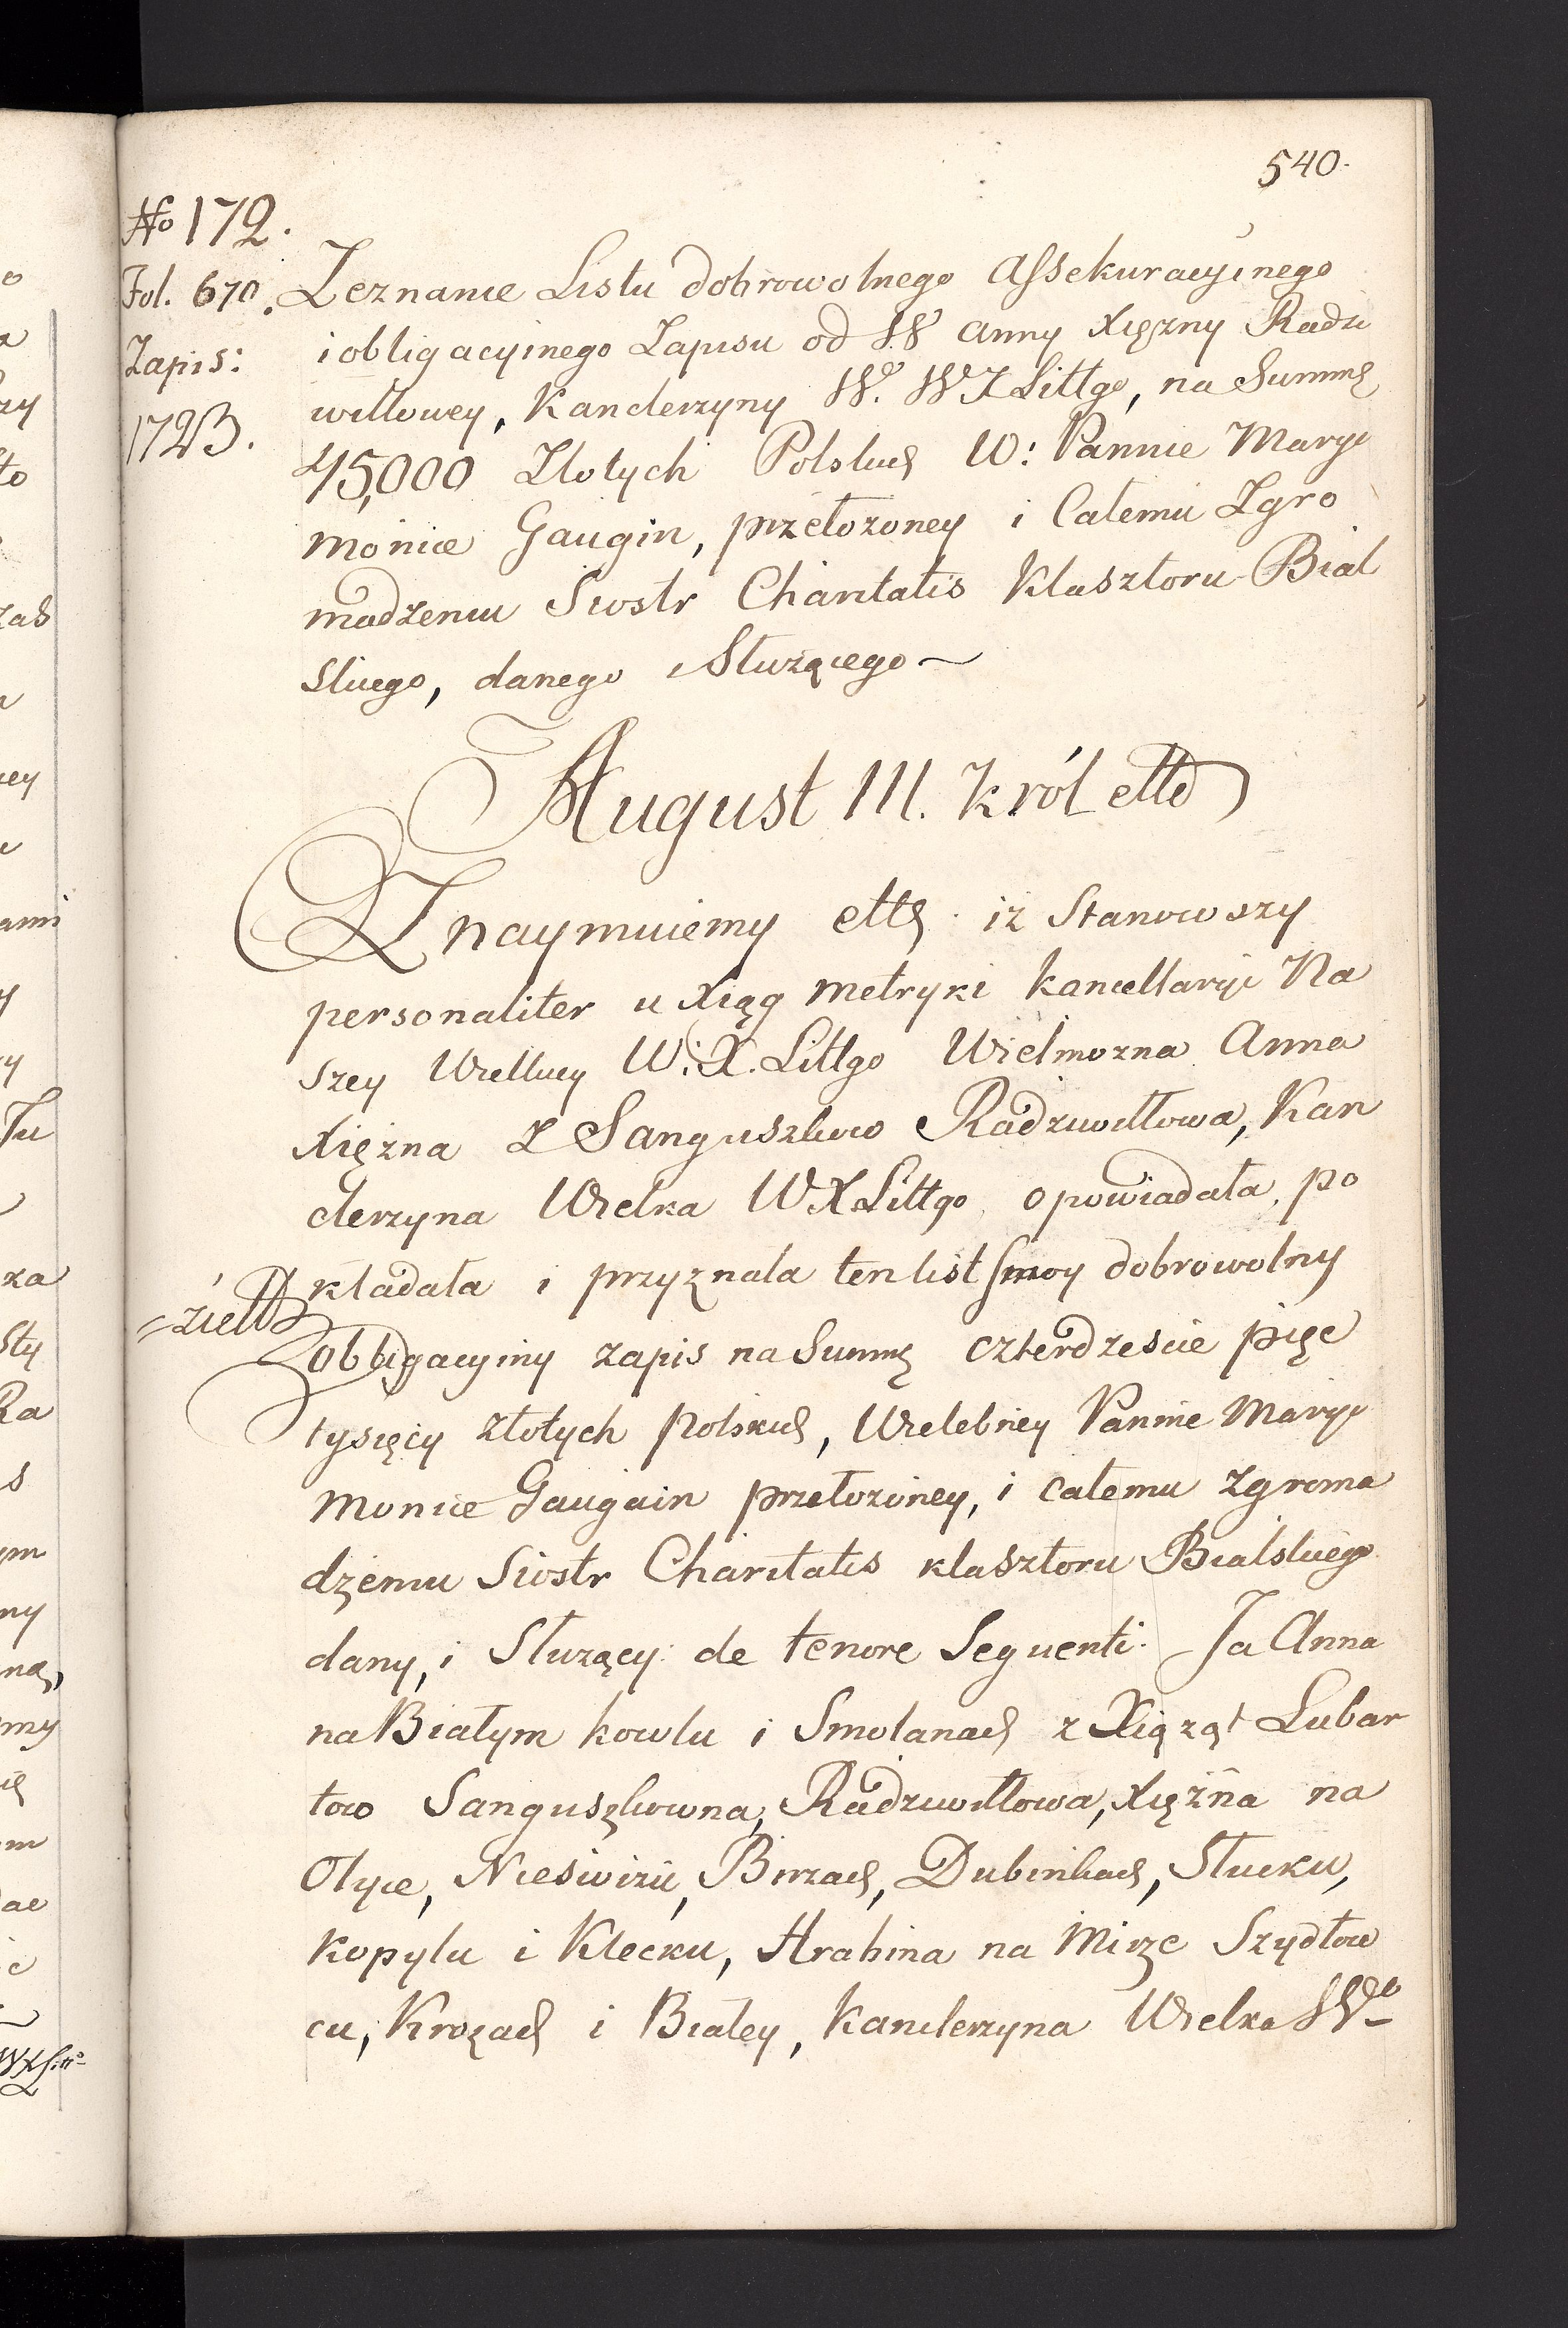 540.
No 172.
Fol. 670.
Zapis:
1723.
Zeznanie Listu dobrowolnego Assekuracyinego
i obligacyinego Zapisu od W Anny Xiężny Radzi
wiłłowey, Kanclerzyny W. W X Littgo, na Summę
45,000 Złotych Polskich W: Pannie Maryi
Monice Gaugin, przełozoney i Całemu Zgro
madzeniu Siostr Charitatis Klasztoru Bial
skiego, danego i Służącego ~
August III. Król ettc
Znaymuiemy ettc. iż Stanowszy
personaliter u Xiąg Metryki Kancellaryi Na
szey Wielkiey W: X. Littgo Wielmozna Anna
Xiężna Z Sanguszkow Radziwiłłowa, Kan
clerzyna Wielka W X Littgo opowiadała, po
kładała i przyznala ten list swoy dobrowolny
obligacyiny zapis na Summę czterdzescie pięc
tysięcy złotych Polskich, Wielebney Pannie Maryi
Monice Gaugain przełożoney, i całemu zgroma
dzeniu Siostr Charitatis klasztoru Bialskiego
dany, i Służący: de tenore Sequenti. Ja Anna
na Białym kowlu i Smolanach z Xiążąt Lubar
tow Sanguszkowna, Radziwiłłowa, Xiężna na
Ołyce, Nieswiżu, Birzach, Dubinkach, Słucku,
Kopylu i Klecku, Hrabina na Mirze Szydłow
cu, Krożach i Białey, Kanclerzyna Wielka W